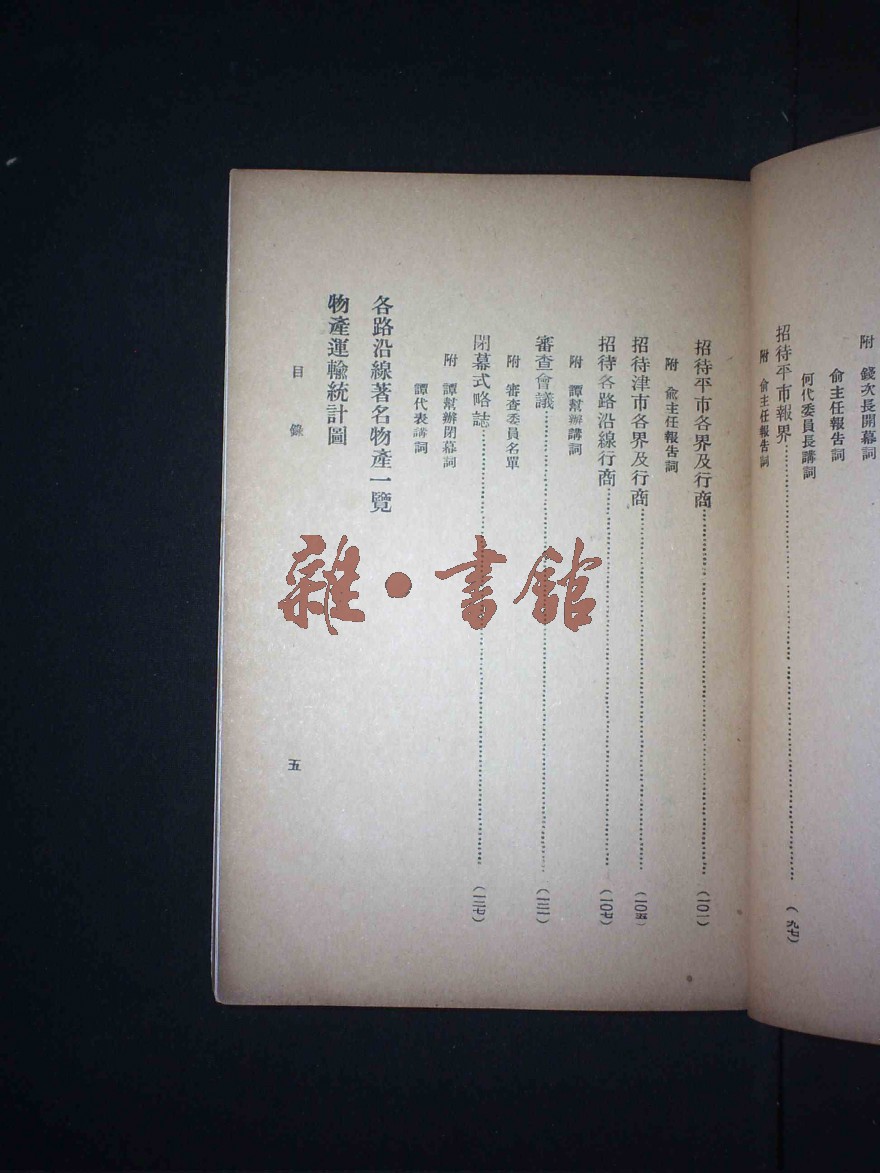 附　錢次長開幕詞
俞主任報告詞
何代委員長講詞
招待平市報界……………………(九七)
附　俞主任報告詞
招待平市各界及行商……………………(一〇一)
附　俞主任報告詞
招待津市各界及行商……………………(一〇五)
招待各路沿線行商……………………(一〇七)
附　譚幫辦講詞
審查會議……………………(一二一)
附　審查委員名單
閉幕式略誌……………………(一二七)
附　譚幫辦閉幕詞
譚代表講詞
各路沿線著名物產一覽
物產運輸統計圖
目　錄　五
雜·書館